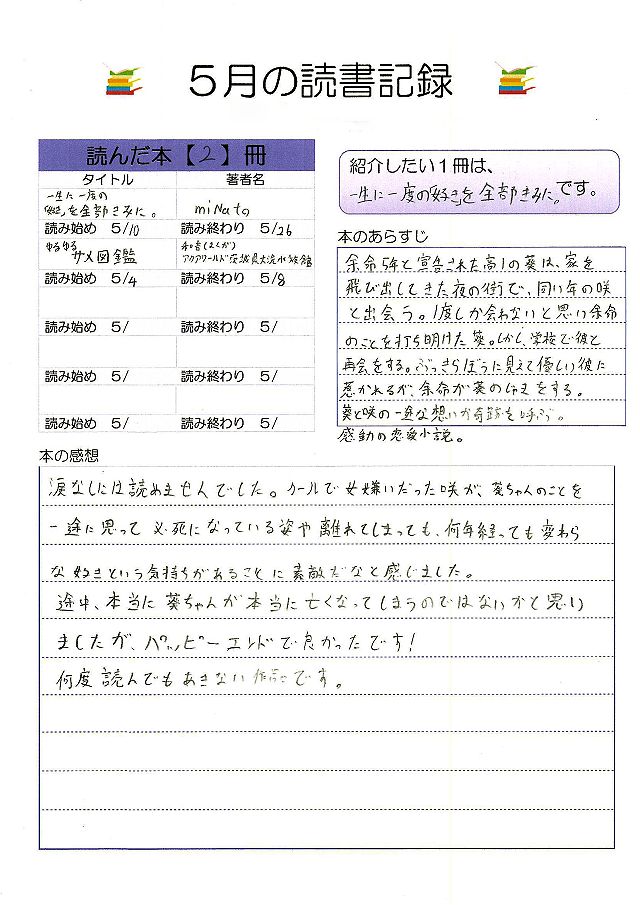 5月の読書記録
読んだ本【2】冊
タイトル 著者名
一生に一度の
「好き」を全部きみに。 miNato
読み始め 5/10 読み終わり 5/26
ゆるゆる
サメ図鑑
アクアワールド茨城県大洗水族館
読み始め 5/4 読み終わり 5/8
読み始め 5/ 読み終わり 5/
読み始め 5/ 読み終わり 5/
読み始め 5/ 読み終わり 5/
紹介したい1冊は、
一生に一度の「好き」を全部きみに。です。
本のあらすじ
余命5年と宣告された高1の葵は、家を
飛び出してきた夜の街で、同い年の咲
と出会う。1度しか会わないと思い余命
のことを打ち明けた葵。しかし、学校で彼と
再会をする。ぶっきらぼうに見えて優しい彼に
惹かれるが、余命が葵のじゃまをする。
葵と咲の一途な想いが奇跡を呼ぶ。
感動の恋愛小説。
本の感想
涙なしには読めませんでした。クールで女嫌いだった咲が、葵ちゃんのことを
一途に思って必死になっている姿や離れてしまっても、何年経っても変わら
な好きという気持ちがあることに素敵だなと感じました。
途中、本当に葵ちゃんが本当に亡くなってしまうのではないかと思い
ましたが、ハッピーエンドで良かったです!
何度読んでもあきない作品です。